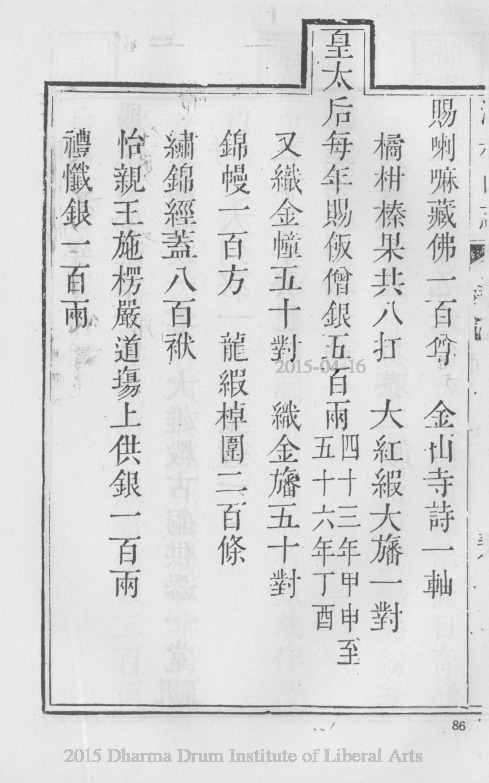 賜喇嘛藏佛一百尊　金山寺詩一軸
橘柑榛果共八扛　大紅緞大旛一對
皇太后每年賜飯僧銀五百兩四十三年甲申至五十六年丁酉
又織金幢五十對　織金旛五十對
錦幔一百方　龍緞棹圍二百條
繡錦經蓋八百袱
怡親王施楞嚴道塲上供銀一百兩
禮懺銀一百兩
86
2015-04-16
2015 Dharma Drum Institute of Liberal Arts